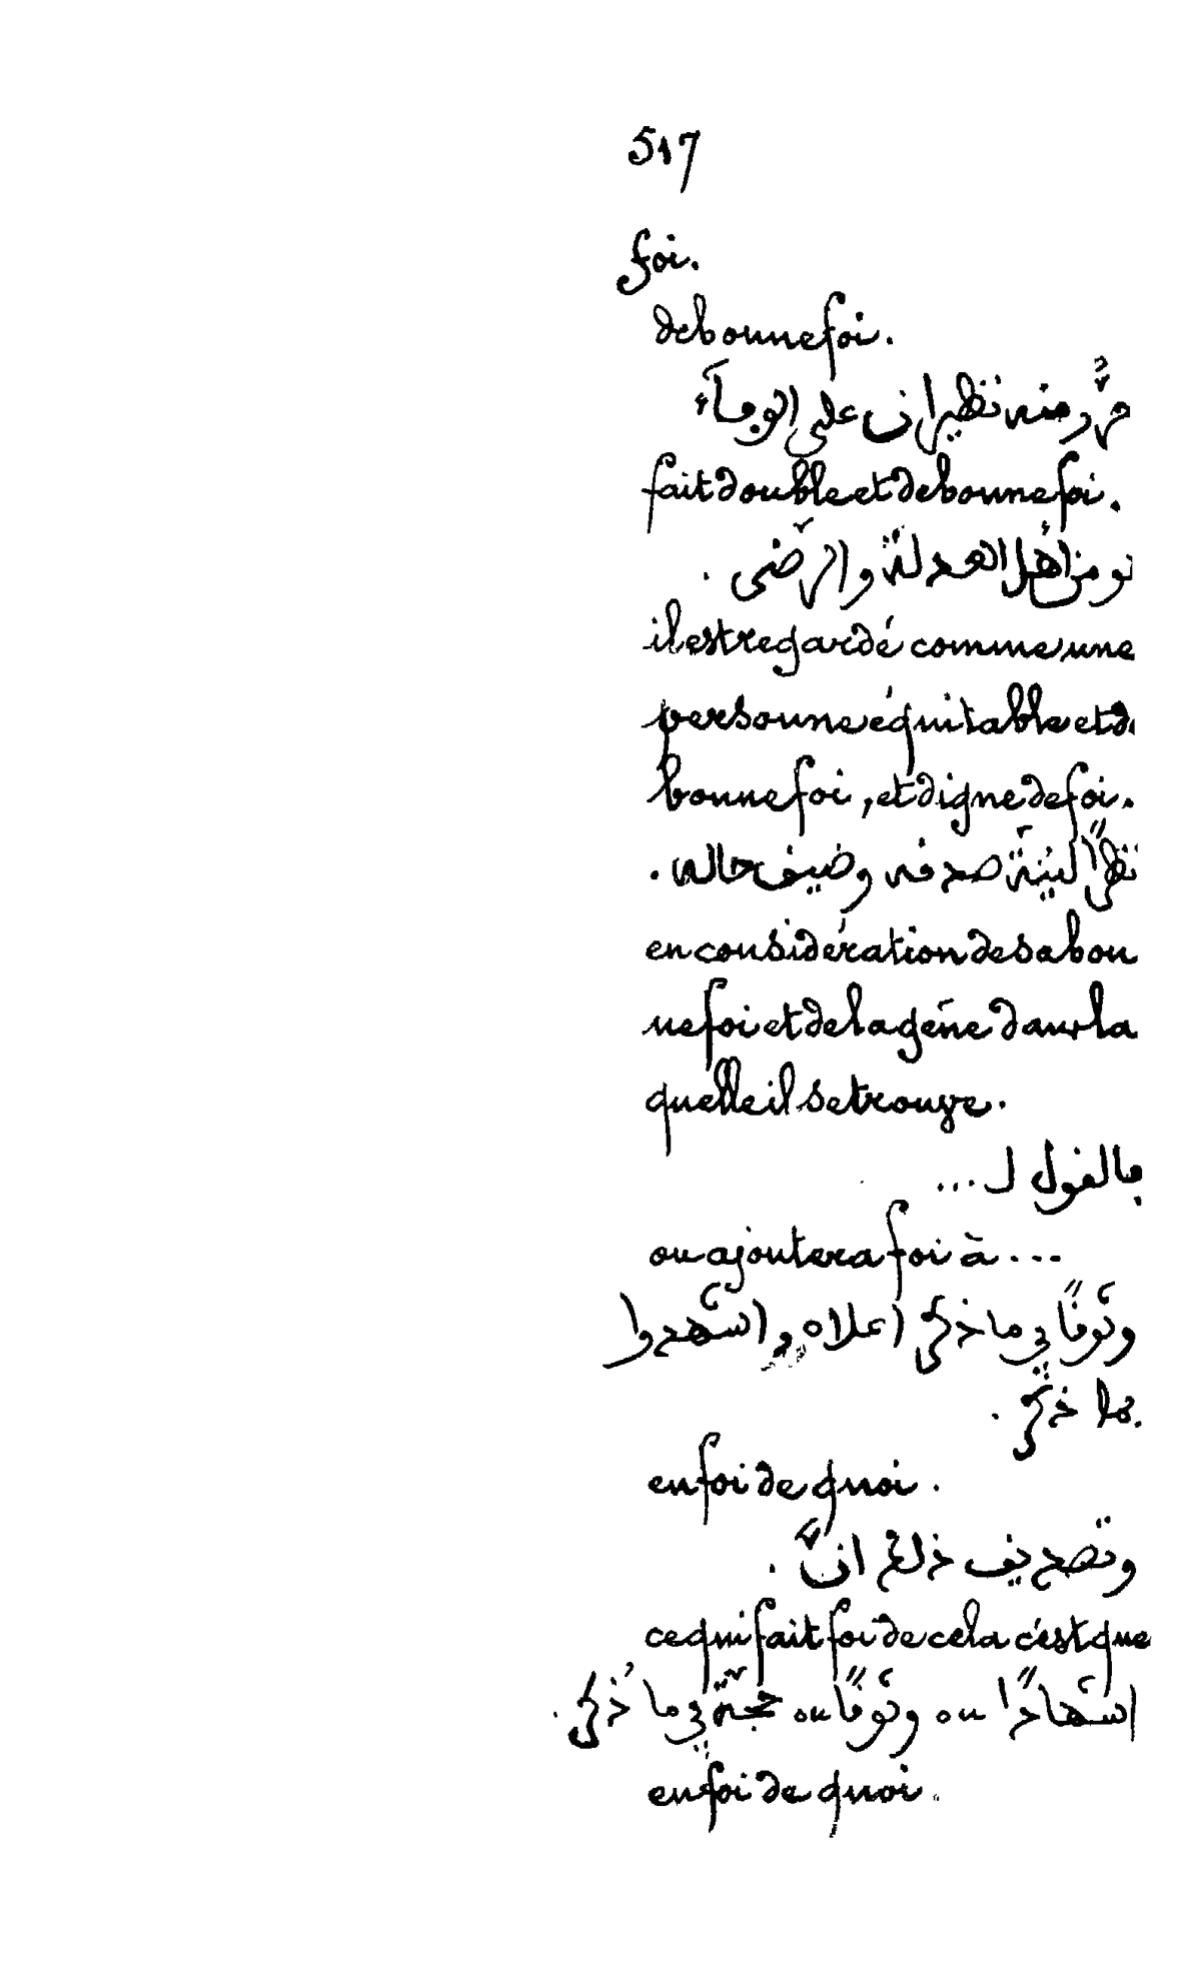 517
foi.
de bonne foi.
حُرّر منه نظيران على الوفآء
fait double et de bonne foi.
من أهل العدلة والرّضى .
il est regardé comme une
personne équitable et d
bonne foi, et digne de foi.
نظرًا لنيّة صدقه وضيق حاله .
en considération de sa bon
ne foi et de la gêne dans la
quelle il se trouve.
فالقول لـ ...
on ajoutera foi à ...
وثوقًا في ما ذكر اعلاه واستشهدوا
ذكر .
en foi de quoi .
وتصديق ذلك انّ .
ce qui fait foi de cela c'est que
استشهادًا ou وثوقًا ou حجّة في ما ذُكر .
en foi de quoi .